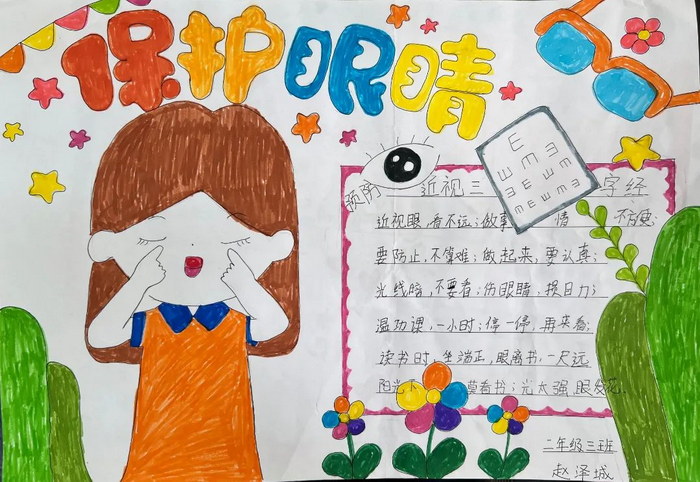 保护眼睛
预防近视三字经
近视眼,看不远;做事情 不方便;
要防止,不算难;做起来,要认真;
光线暗,不要看;伤眼睛,损目力;
温功课,一小时;停一停,再来看;
读书时,坐端正,眼离书,一尺远
阳光下 莫看书;光太强,眼发花
二年级三班
赵泽城
E
E m
E m
m E